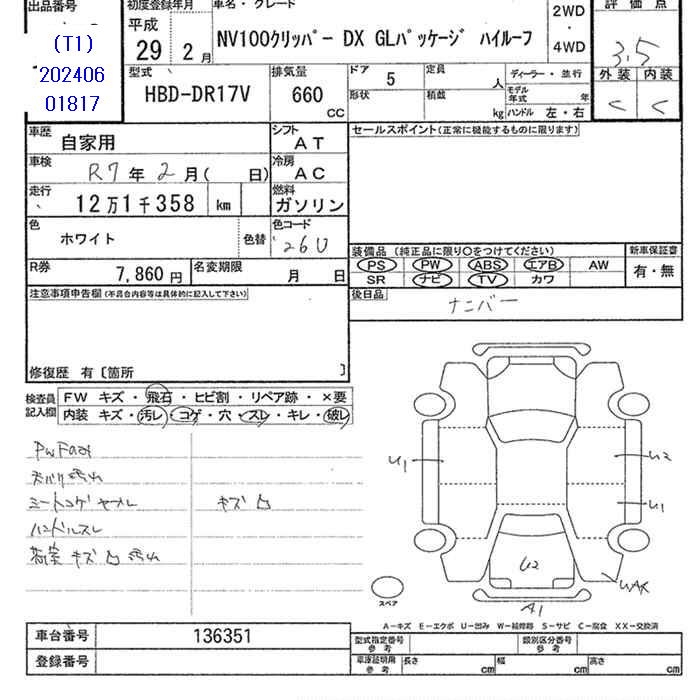 出品番号
(T1)
202406
01817
初度登録年月
平成
29 年 2 月
車名・グレード
NV100クリッパー DX GLパッケージ ハイルーフ
2WD
・
4WD
評価点
3.5
外装 内装
C C
型式
HBD-DR17V
排気量
660
CC
ドア 5
定員 人
形状 積載 kg
ディーラー・並行
モデル年式 年
ハンドル 左・右
車歴 自家用
シフト AT
車検 R7 年 2 月( 日)
冷房 AC
走行 12万1千358 km
燃料 ガソリン
色 ホワイト 色替
色コード 26U
R券 7,860 円
名変期限 月 日
セールスポイント(正常に機能するものに限ります)
装備品 (純正品に限り○をつけてください)
PS PW ABS エアB AW
SR ナビ TV カワ
新車保証書
有・無
後日品
ナンバー
注意事項申告欄(不具合内容等は具体的に記入して下さい)
修復歴 有〔箇所 〕
検査員記入欄
FW キズ・飛石・ヒビ割・リペア跡・×要
内装 キズ・汚レ・コゲ・穴・スレ・キレ・破レ
天バリ汚れ
シートコゲヤブレ
キズ 凸
ハンドルスレ
荷室 キズ 凸 汚れ
U1
U2
U1
U2
A1
スペア
A-キズ E-エクボ U-凹み W-補修跡 S-サビ C-腐食 XX-交換済
車台番号 136351
登録番号
型式指定番号 参考
類別区分番号 参考
車庫証明用 参考
長さ cm
幅 cm
高さ cm